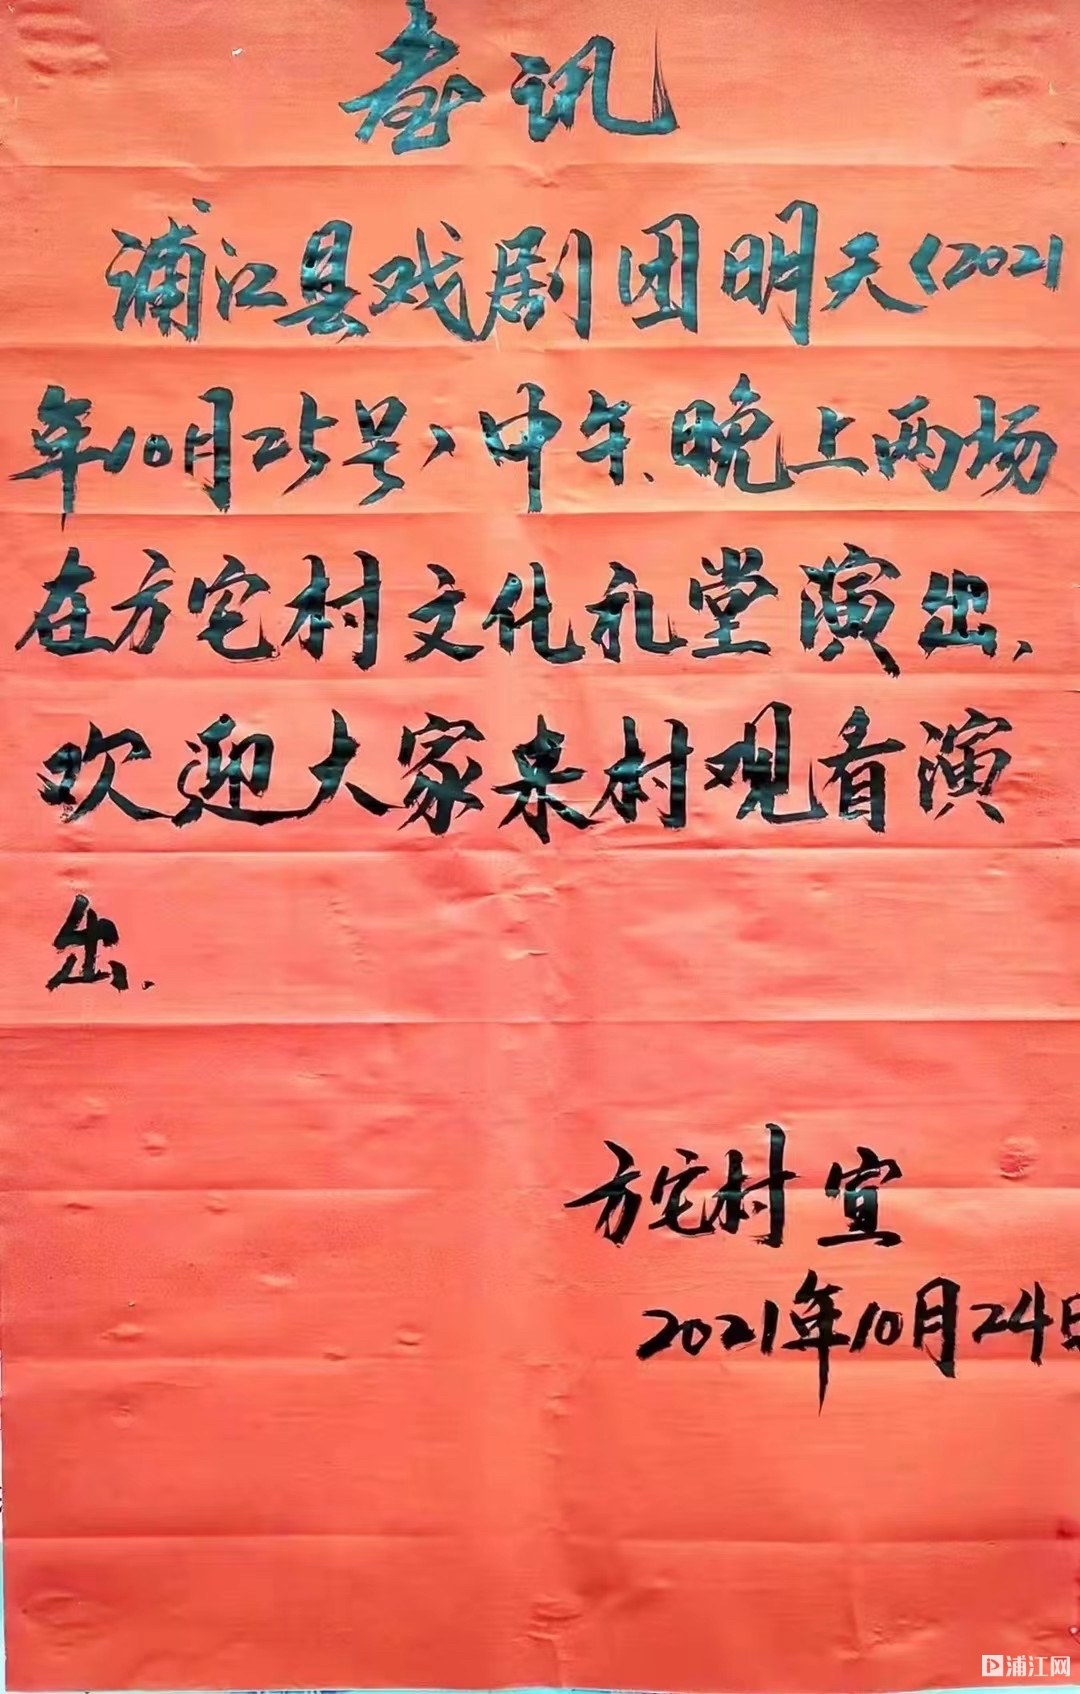 喜讯
浦江县戏剧团明天(2021
年10月25号)中午、晚上两场
在方宅村文化礼堂演出,
欢迎大家来村观看演
出.
方宅村宣
2021年10月24日
浦江网